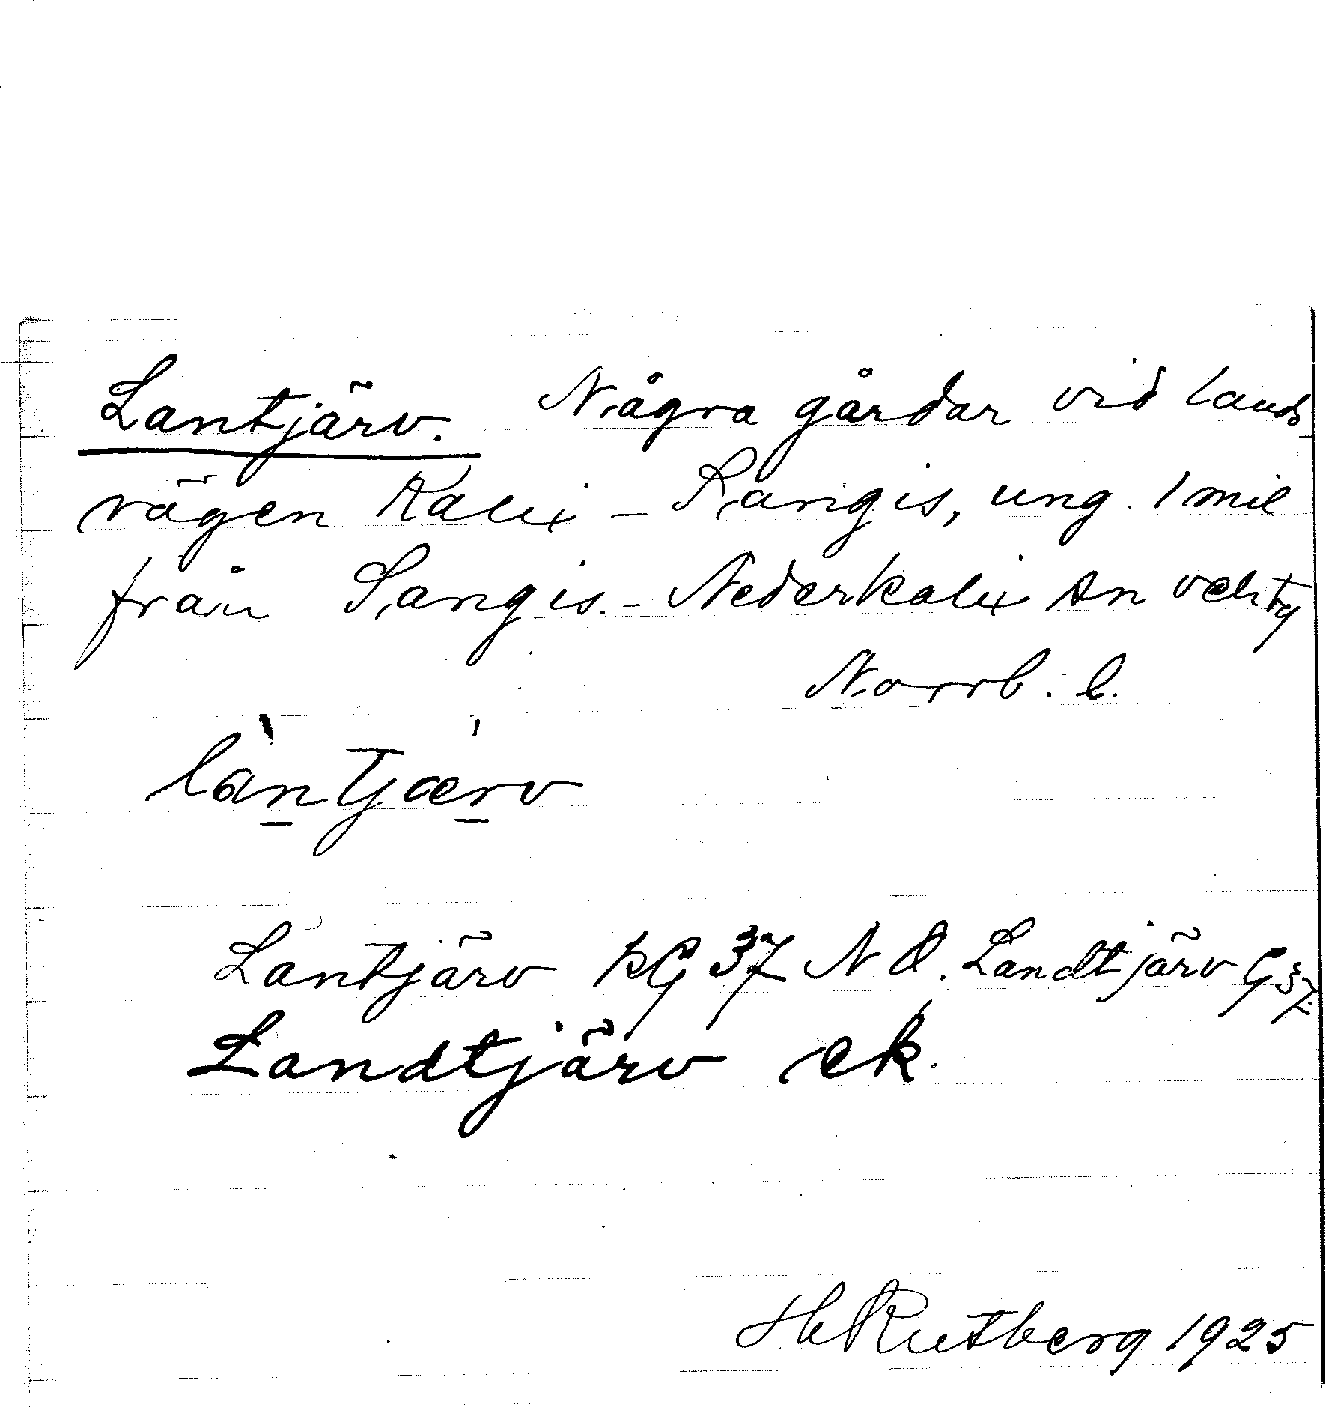 Lantjärv. Några gårdar vid lands-
vägen Kalix - Sangis, ung. 1 mil
från Sangis. - Nederkalix sn och tg
Norrb. l.
làntjærv
Lantjärv kG 37 N Ö. Landtjärv G 37.
Landtjärv ek.
H Rutberg 1925